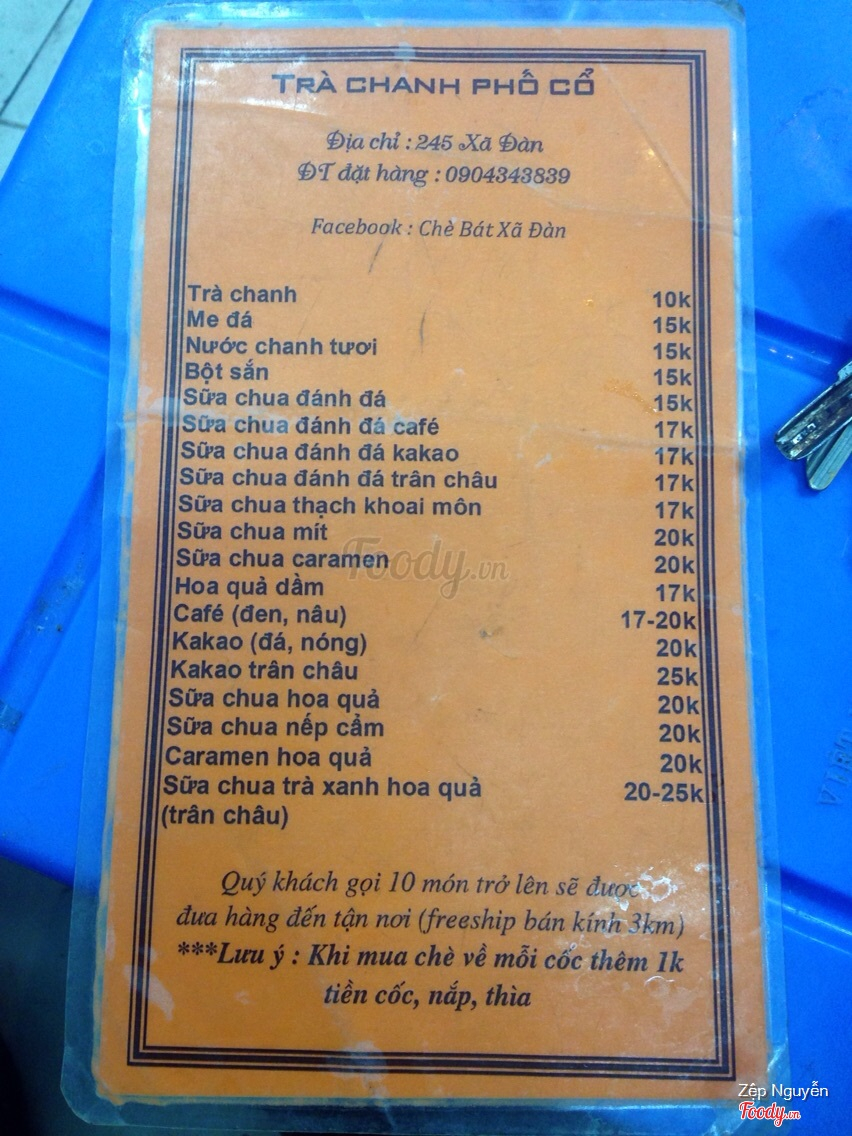 TRÀ CHANH PHỐ CỔ
Địa chỉ : 245 Xã Đàn
ĐT đặt hàng : 0904343839
Facebook : Chè Bát Xã Đàn
Trà chanh 10k
Me đá 15k
Nước chanh tươi 15k
Bột sắn 15k
Sữa chua đánh đá 15k
Sữa chua đánh đá café 17k
Sữa chua đánh đá kakao 17k
Sữa chua đánh đá trân châu 17k
Sữa chua thạch khoai môn 17k
Sữa chua mít 20k
Sữa chua caramen 20k
Hoa quả dầm 17k
Café (đen, nâu) 17-20k
Kakao (đá, nóng) 20k
Kakao trân châu 25k
Sữa chua hoa quả 20k
Sữa chua nếp cẩm 20k
Caramen hoa quả 20k
Sữa chua trà xanh hoa quả 20-25k
(trân châu)
Quý khách gọi 10 món trở lên sẽ được
đưa hàng đến tận nơi (freeship bán kính 3km)
***Lưu ý : Khi mua chè về mỗi cốc thêm 1k
tiền cốc, nắp, thìa
Foody.vn
Zệp Nguyễn
Foody.vn